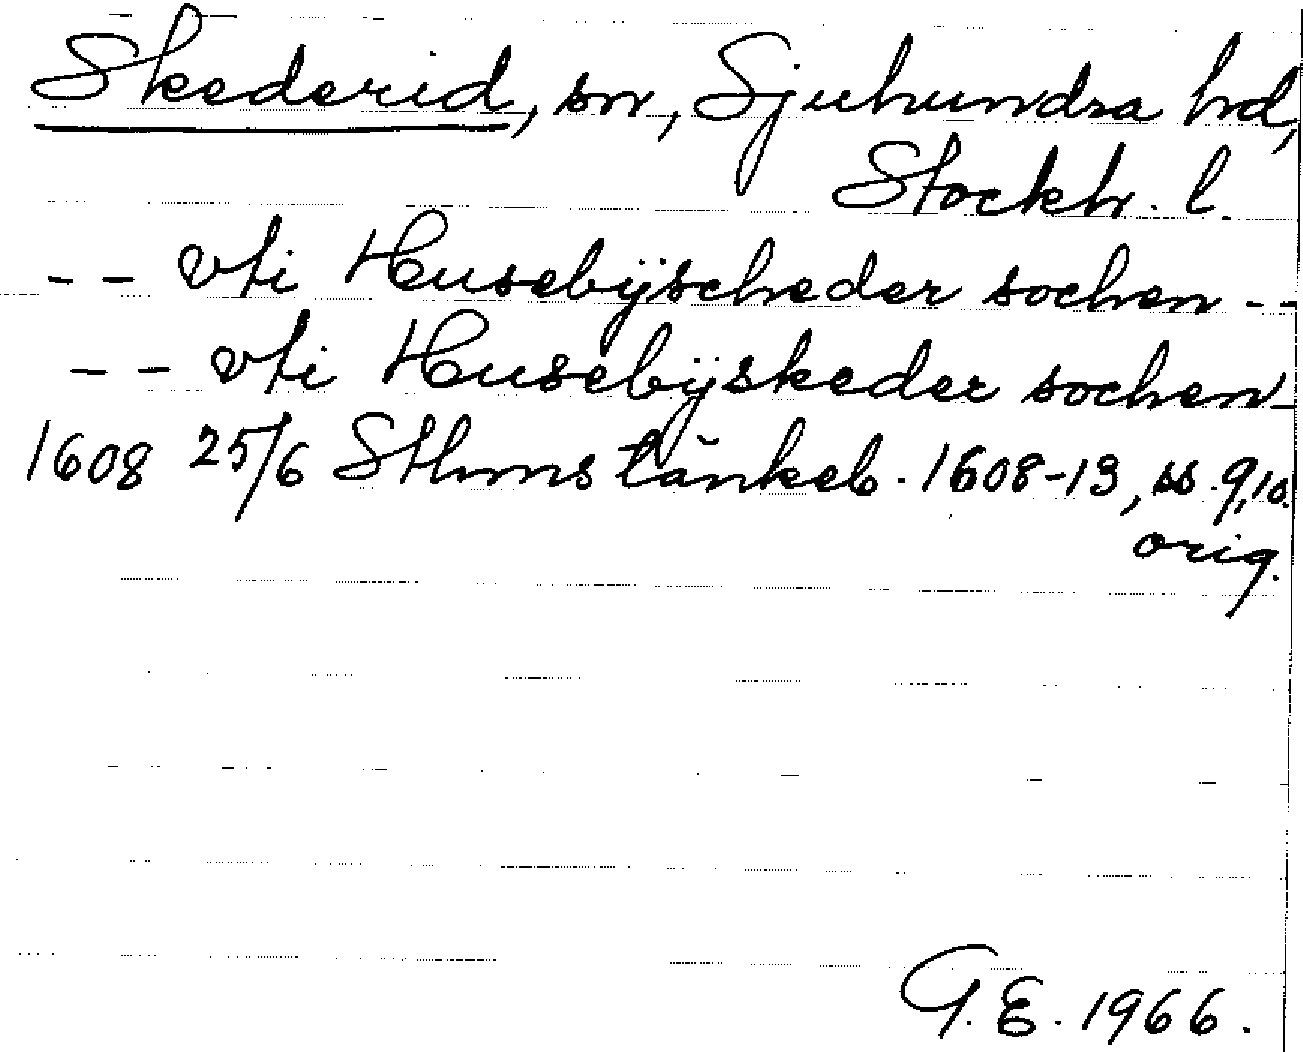 Skederid, sn, Sjuhundra hd,
Stockh. l.
-- vti Husebÿscheder sochen --
-- vti Husebÿskeder sochen -
1608 25/6 Sthms tänkeb. 1608-13, ss. 9, 10.
orig.
G.E. 1966.